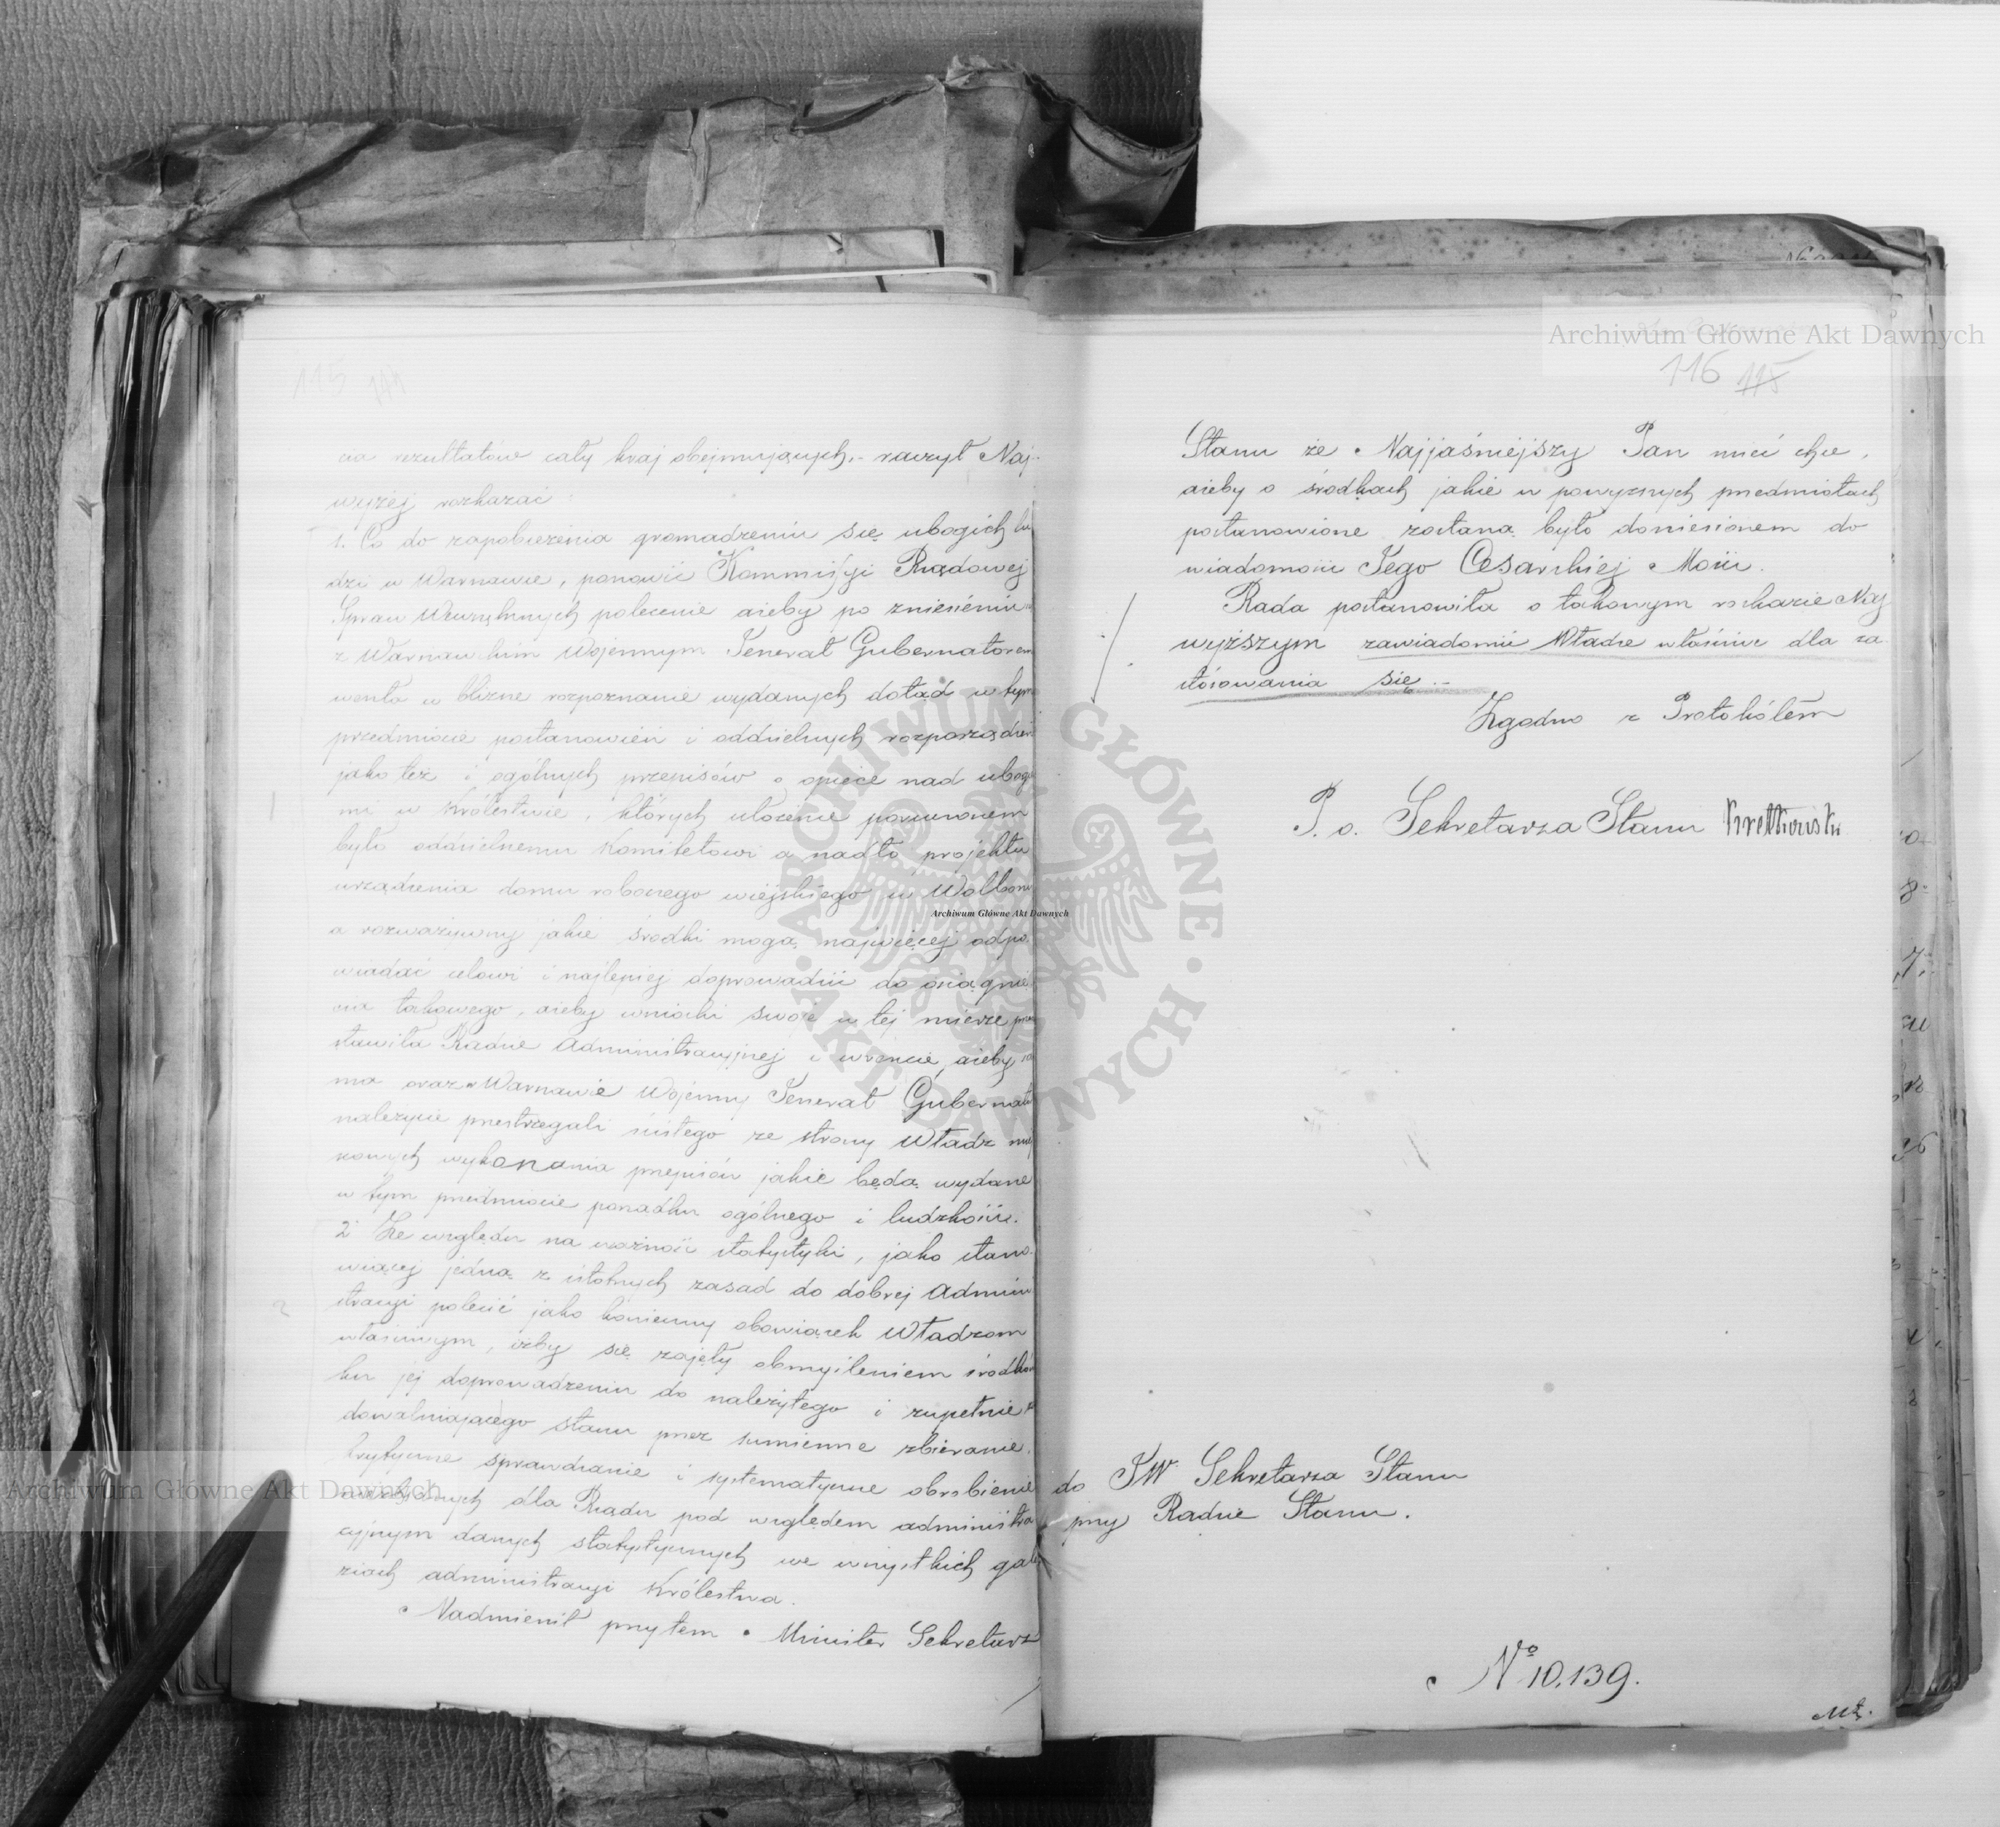 115 114
cia rezultatów cały kraj obejmujących, – raczył Naj-
wyżej rozkazać:
1. Co do zapobieżenia gromadzeniu się ubogich lu
dzi w Warszawie, ponowić Kommissyi Rządowej
Spraw Wewnętrznych polecenie ażeby po zniesieniu
z Warszawskim Wojennym Jenerał Gubernatorem
weszła w bliższe rozpoznanie wydanych dotąd w tym
przedmiocie postanowień i oddzielnych rozporządzeń
jako też i ogólnych przepisów o opiece nad ubogi
mi w Królestwie, których ułożenie poruczonem
było oddzielnemu Komitetowi a nadto projektu
urządzenia domu roboczego wiejskiego w Wolborzu
a rozważywszy jakie środki mogą najwięcej odpo
wiadać celowi i najlepiej doprowadzić do osiągnie
cia takowego, ażeby wnioski swoje w tej mierze prze
stawiła Radzie Administracyjnej i wreszcie, ażeby
ma oraz Warszawie Wojenny Jenerał Gubernator
należycie przestrzegali ścisłego ze strony Władz miej
scowych wykonania przepisów jakie będą wydane
w tym przedmiocie porządku ogólnego i ludzkości.
2 Ze względu na ważność statystyki, jako stano
wiącej jedną z istotnych zasad do dobrej Admini
stracyi polecić jako konieczny obowiązek Władzom
właściwym, iżby się zajęły obmyśleniem środków
ku jej doprowadzeniu do należytego i zupełnie za
dowalniającego stanu przez sumienne zbieranie,
krytyczne sprawdzanie i systematyczne obrobienie
niezbędnych dla Rządu pod względem administra
cyjnym danych statystycznych we wszystkich gałę
ziach administracyi Królestwa.
Nadmienił przytem Minister Sekretarz
116 115
Stanu że Najjaśniejszy Pan mieć chce,
ażeby o środkach jakie w powyższych przedmiotach
postanowione zostaną było doniesionem do
wiadomości Jego Cesarskiej Mości.
Rada postanowiła o takowym rozkazie Naj
wyższym zawiadomić Władze właściwe dla za
stósowania się. –
Zgodno z Protokółem
P. o. Sekretarza Stanu Krethowski
do JW. Sekretarza Stanu
przy Radzie Stanu.
No 10,139.
Archiwum Główne Akt Dawnych
Archiwum Główne Akt Dawnych
Archiwum Główne Akt Dawnych
ARCHIWUM GŁÓWNE AKT DAWNYCH